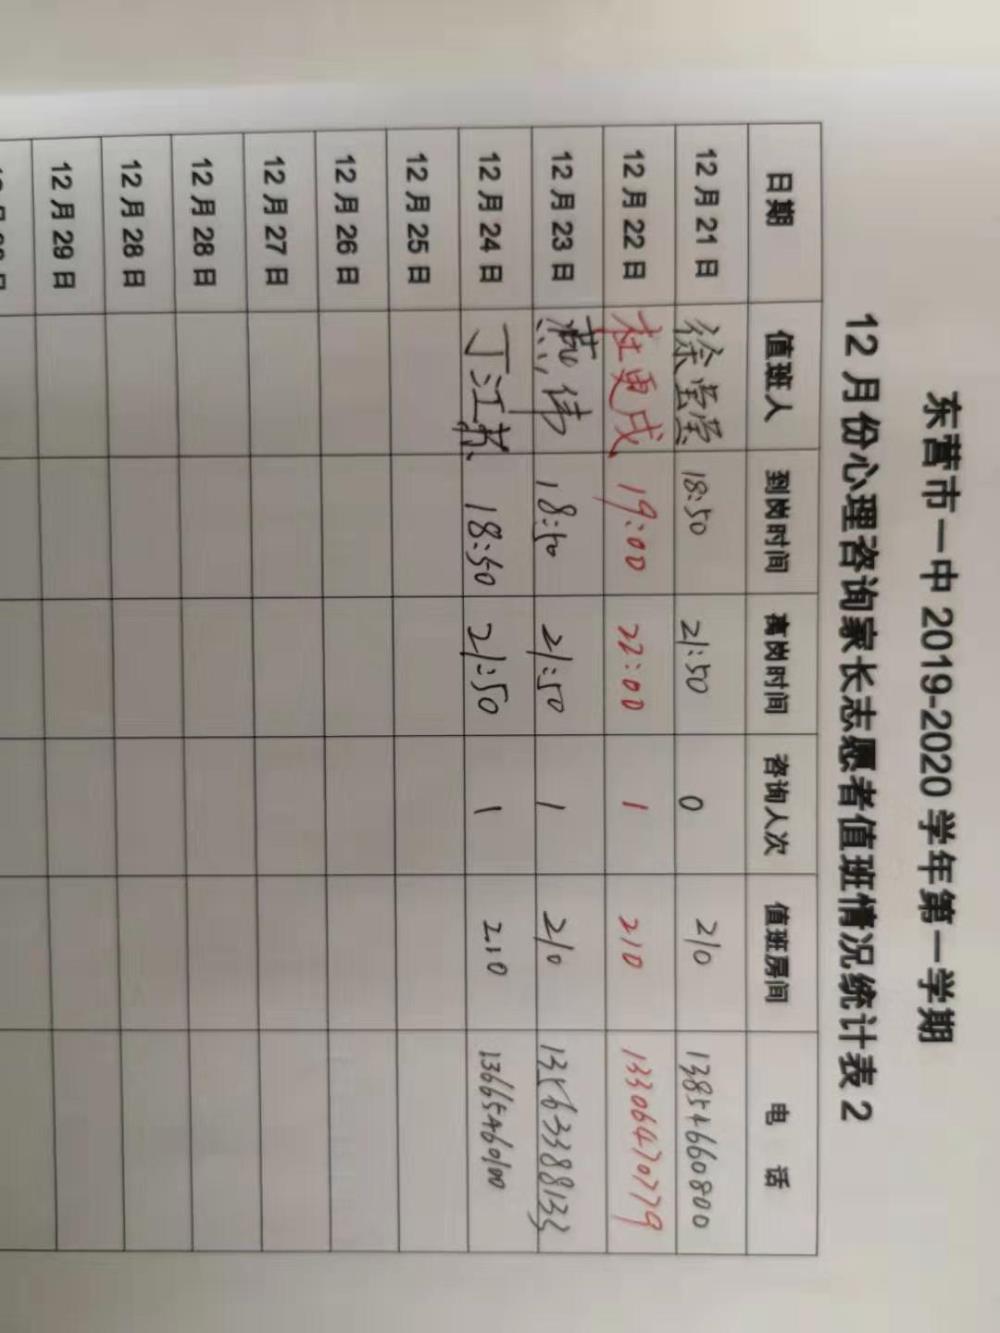 东营市一中 2019-2020 学年第一学期
12 月份心理咨询家长志愿者值班情况统计表 2
日期 值班人 到岗时间 离岗时间 咨询人次 值班房间 电 话
12 月 21 日 徐莹莹 18:50 21:50 0 210 13854660800
12 月 22 日 杜更成 19:00 22:00 1 210 13306470779
12 月 23 日 燕伟 18:50 21:50 1 210 13563388133
12 月 24 日 丁江苏 18:50 21:50 1 210 13665460100
12 月 25 日
12 月 26 日
12 月 27 日
12 月 28 日
12 月 28 日
12 月 29 日